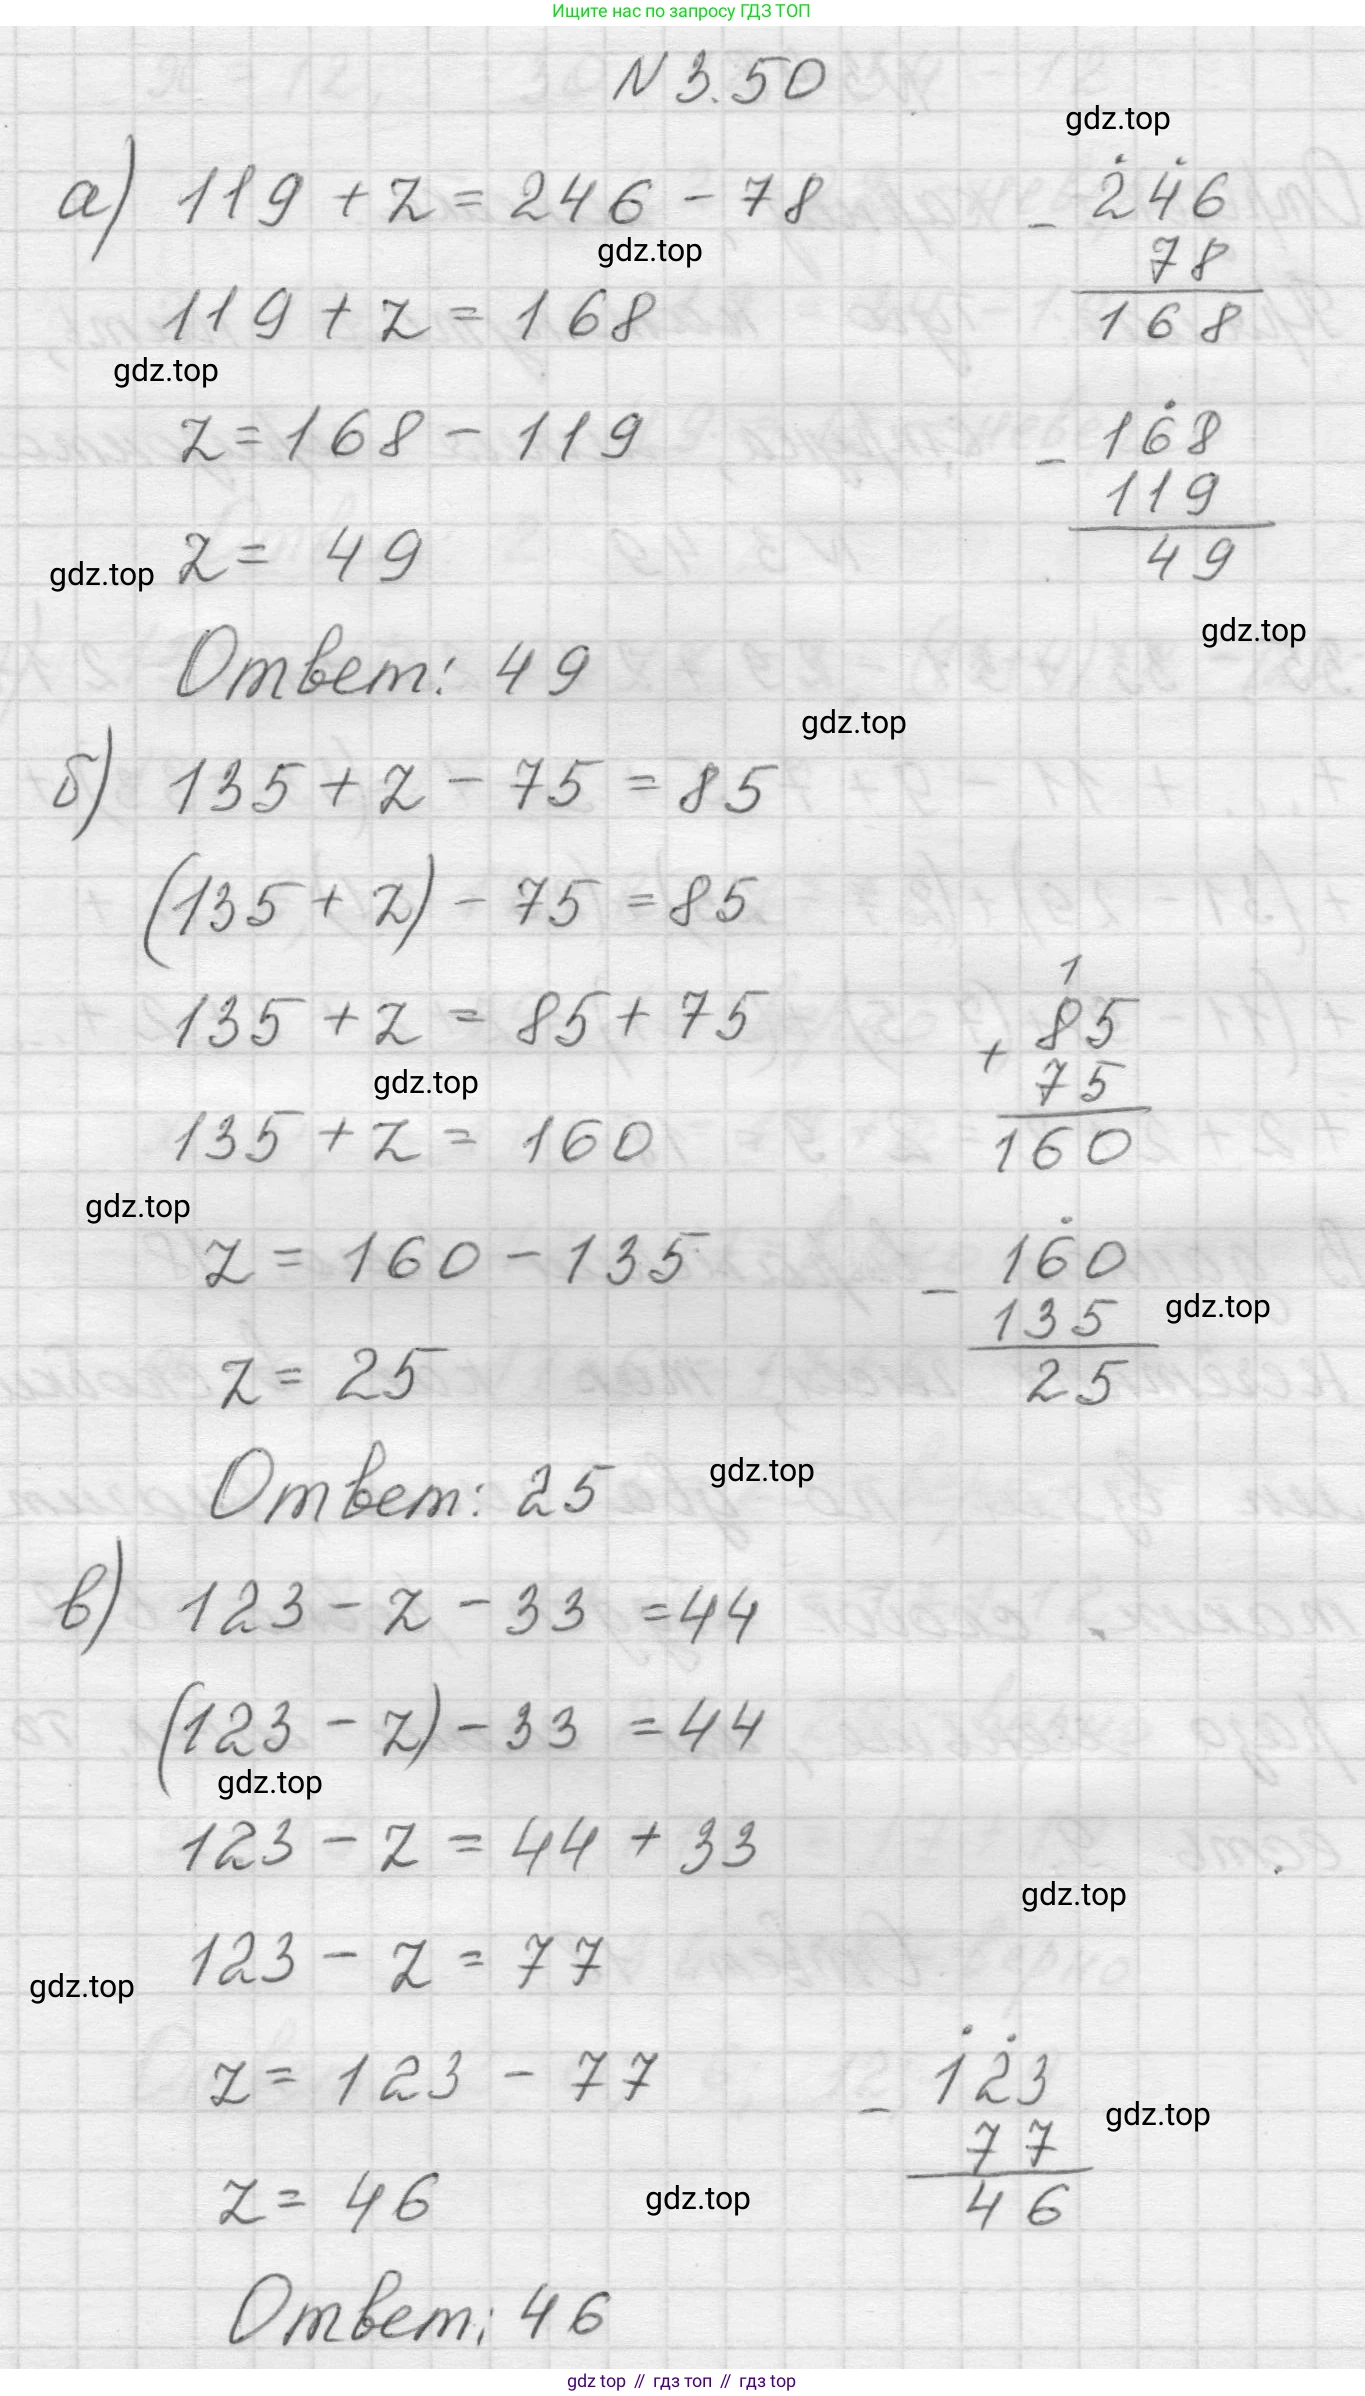 Ищите нас по запросу ГДЗ ТОП
N 3.50
gdz.top
а) 119 + z = 246 - 78
- 246
78
168
gdz.top
119 + z = 168
gdz.top
z = 168 - 119
- 168
119
49
z = 49
gdz.top
gdz.top
Ответ: 49
gdz.top
б) 135 + z - 75 = 85
(135 + z) - 75 = 85
135 + z = 85 + 75
1
+ 85
75
160
gdz.top
135 + z = 160
gdz.top
z = 160 - 135
- 160
135
25
gdz.top
z = 25
Ответ: 25
gdz.top
в) 123 - z - 33 = 44
(123 - z) - 33 = 44
gdz.top
123 - z = 44 + 33
gdz.top
123 - z = 77
gdz.top
z = 123 - 77
- 123
77
46
gdz.top
z = 46
gdz.top
Ответ: 46
gdz top // гдз топ // гдз top